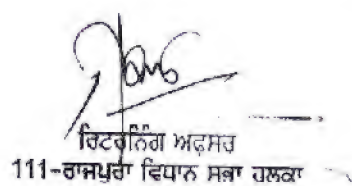 ਰਿਟਰਨਿੰਗ ਅਫ਼ਸਰ
111-ਰਾਜਪੁਰਾ ਵਿਧਾਨ ਸਭਾ ਹਲਕਾ